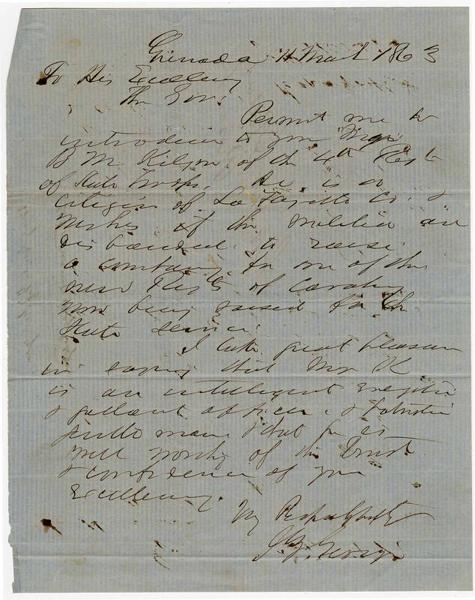 Grenada 11 Mar 1863
To His Excellency
The Gov.
Permit me to
introduce to you Maj
B M Kilgore of the 4th Regt
of State Troops. He is a
citizen of La Fayette Co. &
wishes if the militia are
disbanded to raise
a company for one of the
new Regts of Cavalry
now being raised for the
State service.
I take great pleasure
in saying that Maj K
is an intelligent energetic
& gallant officer & patriotic
gentleman & that he is
well worthy of the trust
& confidence of your
Excellency.
Very Respectfully
J Z George